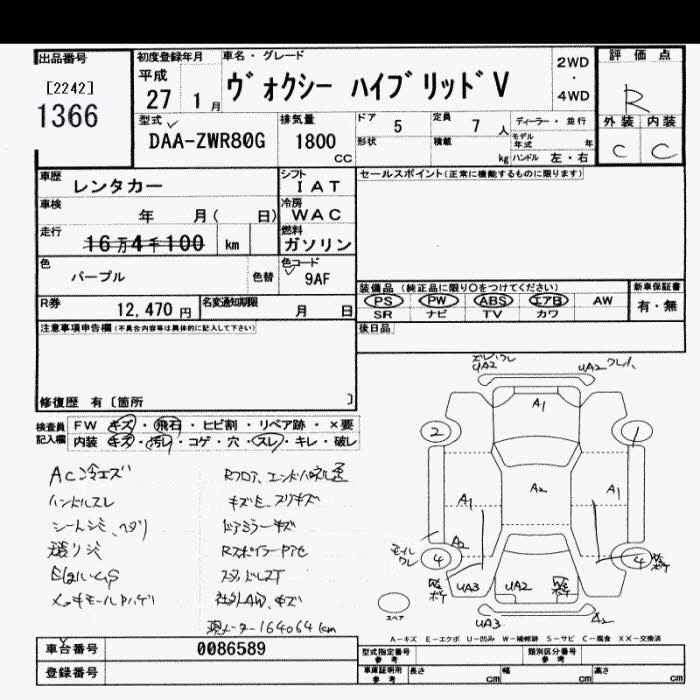 出品番号
[2242]
1366
初度登録年月
平成
27 1月
車名・グレード
ヴォクシー ハイブリッドV
2WD
・
4WD
評価点
R
外装 内装
C C
型式
DAA-ZWR80G
排気量
1800
CC
ドア 5
定員 7 人
形状
積載 kg
ディーラー・並行
モデル年式 年
ハンドル 左・右
車歴
レンタカー
シフト
IAT
セールスポイント(正常に機能するものに限ります)
車検
年 月( 日)
冷房
WAC
走行
16万4千100 km
燃料
ガソリン
色
パープル
色替
色コード
9AF
装備品 (純正品に限り○をつけてください)
PS PW ABS エアB AW
SR ナビ TV カワ
新車保証書
有・無
R券
12,470 円
名変通知期限
月 日
後日品
注意事項申告欄(不具合内容等は具体的に記入して下さい)
修復歴 有〔箇所 〕
検査員
記入欄
FW キズ・飛石・ヒビ割・リペア跡・×要
内装 キズ・汚れ・コゲ・穴・スレ・キレ・破レ
AC冷エズ
ハンドルスレ
シートシミ、ヘタリ
Rフロア、エンドパネル歪
キズモ、スリキズ
ドアミラーキズ
RスポイラーP汚
スタッドレスT
社外AW、キズ
メッキモールPハゲ
現メーター164064km
モレ,ワレ
UA2
UA2
ワレ
A1
2
1
A2
A1
A1
A2
モールワレ
4
4
UA3
UA2
UA3
A2
スペア
A-キズ E-エクボ U-凹み W-補修跡 S-サビ C-腐食 XX-交換済
車台番号
0086589
登録番号
型式指定番号
参考
類別区分番号
参考
車庫証明用
参考
長さ cm
幅 cm
高さ cm